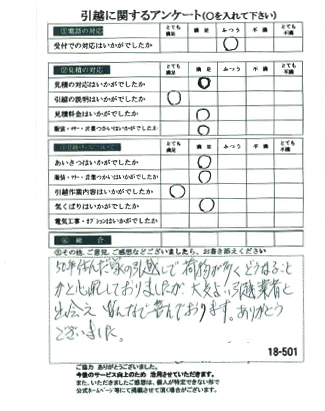 引越に関するアンケート(○を入れて下さい)
①電話の対応 とても満足 満足 ふつう 不満 とても不満
受付での対応はいかがでしたか ○
②見積の対応 とても満足 満足 ふつう 不満 とても不満
見積の対応はいかがでしたか ○
引越の説明はいかがでしたか ○
見積料金はいかがでしたか ○
服装・マナー・言葉つかいはいかがでしたか ○
とても満足 満足 ふつう 不満 とても不満
あいさつはいかがでしたか ○
服装・マナー・言葉つかいはいかがでしたか ○
引越作業内容はいかがでしたか ○
気くばりはいかがでしたか ○
電気工事・オプションはいかがでしたか
④総合 とても満足 満足 ふつう 不満 とても不満
⑤その他、ご意見、ご感想などございましたら、お書き添えください
50年住んだ家の引越しで荷物が多くどうなること
かと心配しておりましたが、大変よい引越業者と
出会え皆んなで喜んでおります。ありがとう
ございました。
18-501
ご協力 ありがとうございました。
今後のサービス向上のため 活用させていただきます。
また、いただきましたご感想は、個人が特定できない形で
公式ホームページ等にて掲載させて頂く場合がございます。